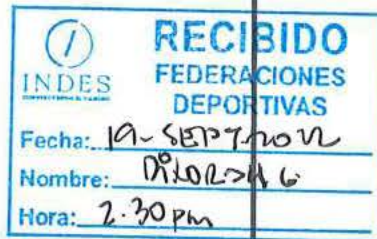 RECIBIDO
INDES
FEDERACIONES
DEPORTIVAS
Fecha: 19-SEPT-2022
Nombre:
Hora: 2.30 pm